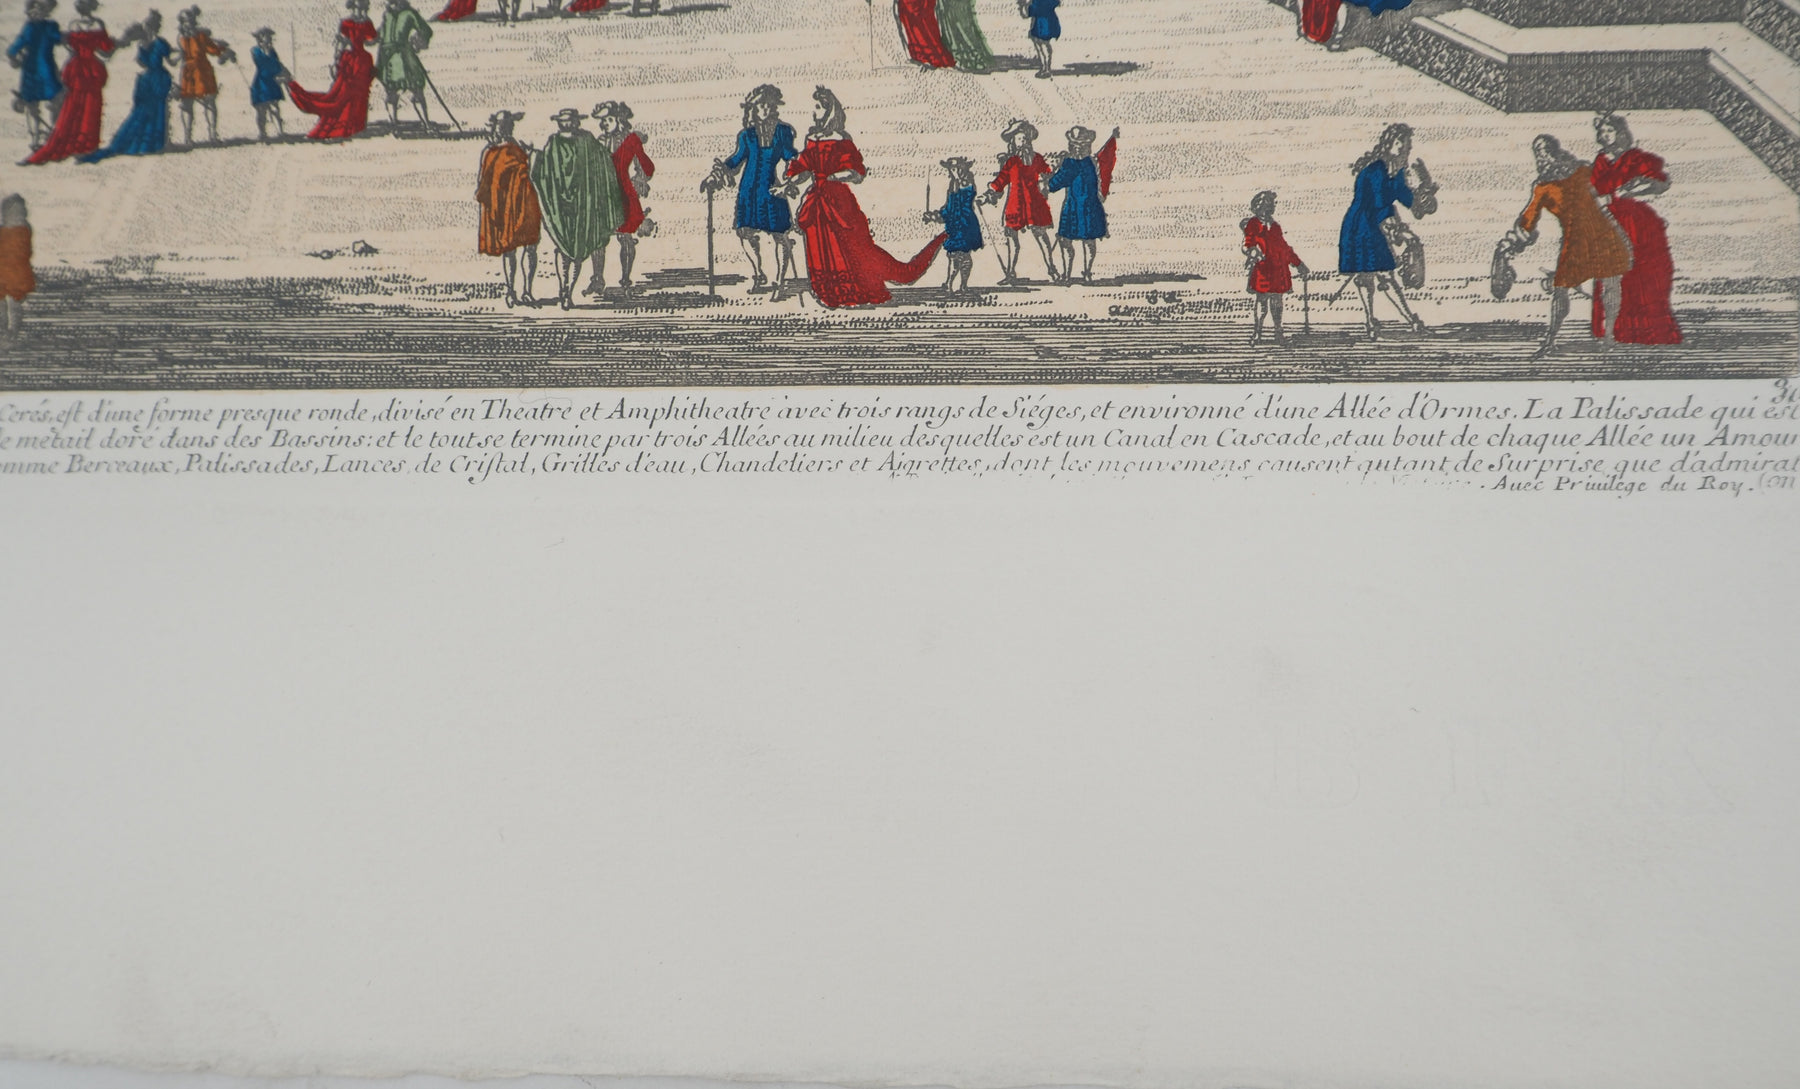 Cerés, est d'une forme presque ronde, divisé en Theatre et Amphitheatre avec trois rangs de Siéges, et environné d'une Allée d'Ormes. La Palissade qui est
metail doré dans des Bassins: et le tout se termine par trois Allées au milieu desquelles est un Canal en Cascade, et au bout de chaque Allée un Amour
omme Berceaux, Palissades, Lances de Cristal, Grilles d'eau, Chandeliers et Aigrettes, dont les mouvemens causent autant de Surprise que d'admirat
Avec Privilege du Roy. (on